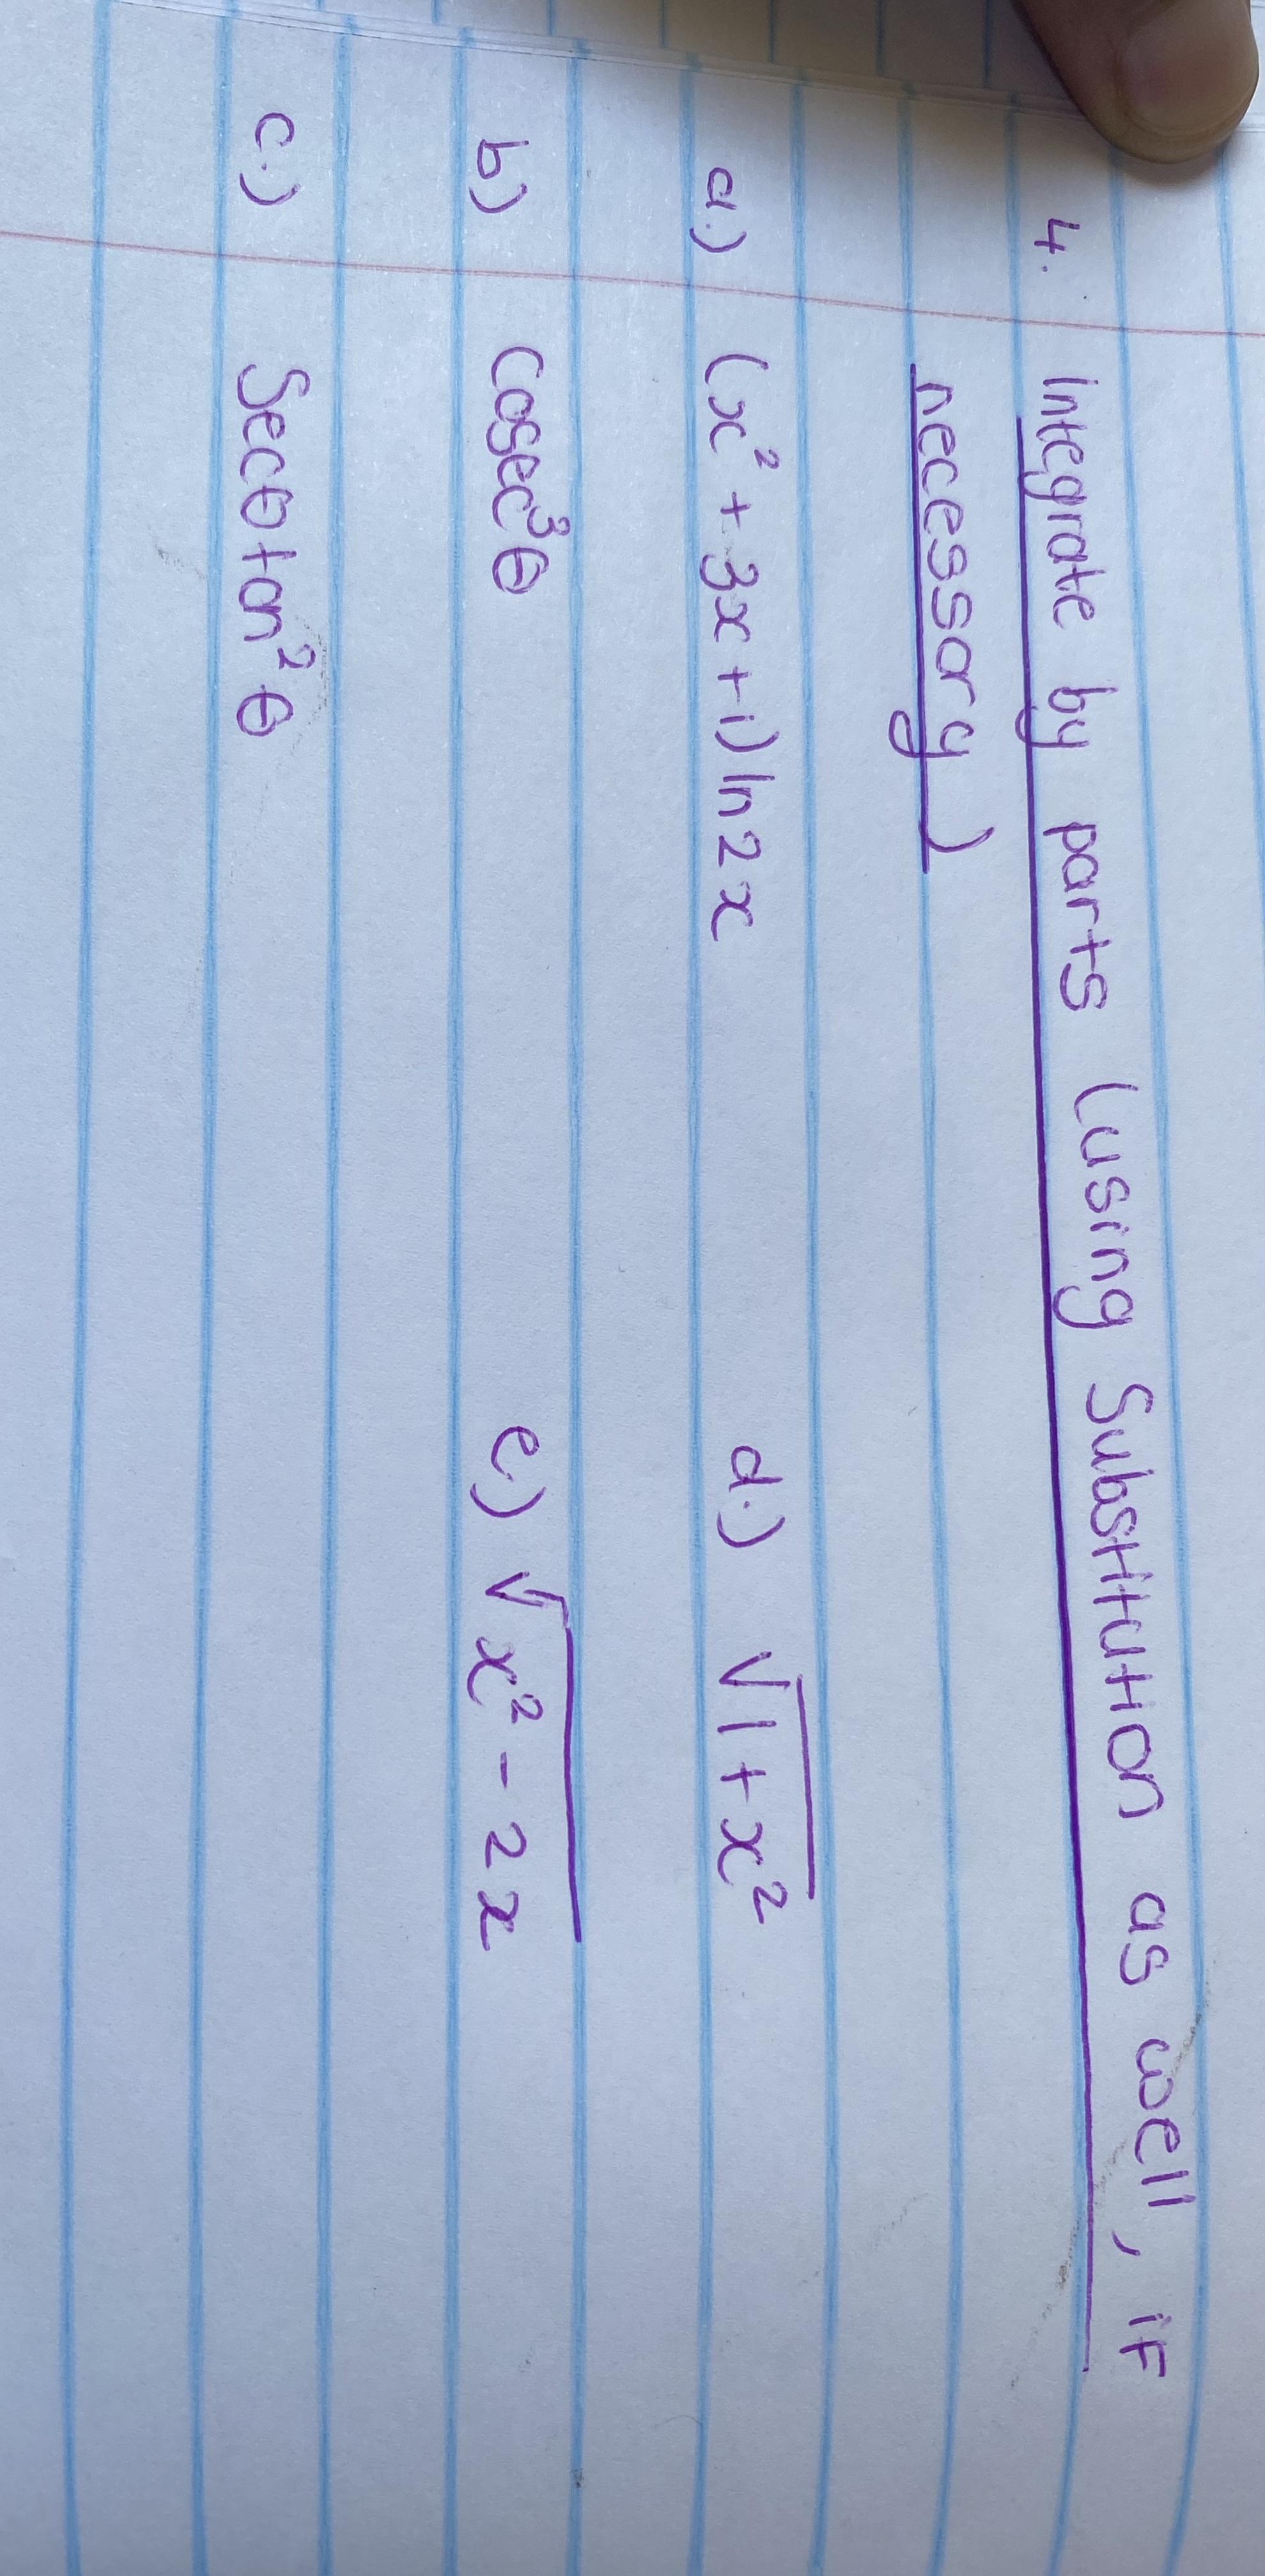 4. Integrate by parts (using Substitution as well, if
necessary)
a.) (x² + 3x + 1) ln 2x d.) √1 + x²
b) cosec³θ e.) √x² - 2x
c.) Secθtan²θ